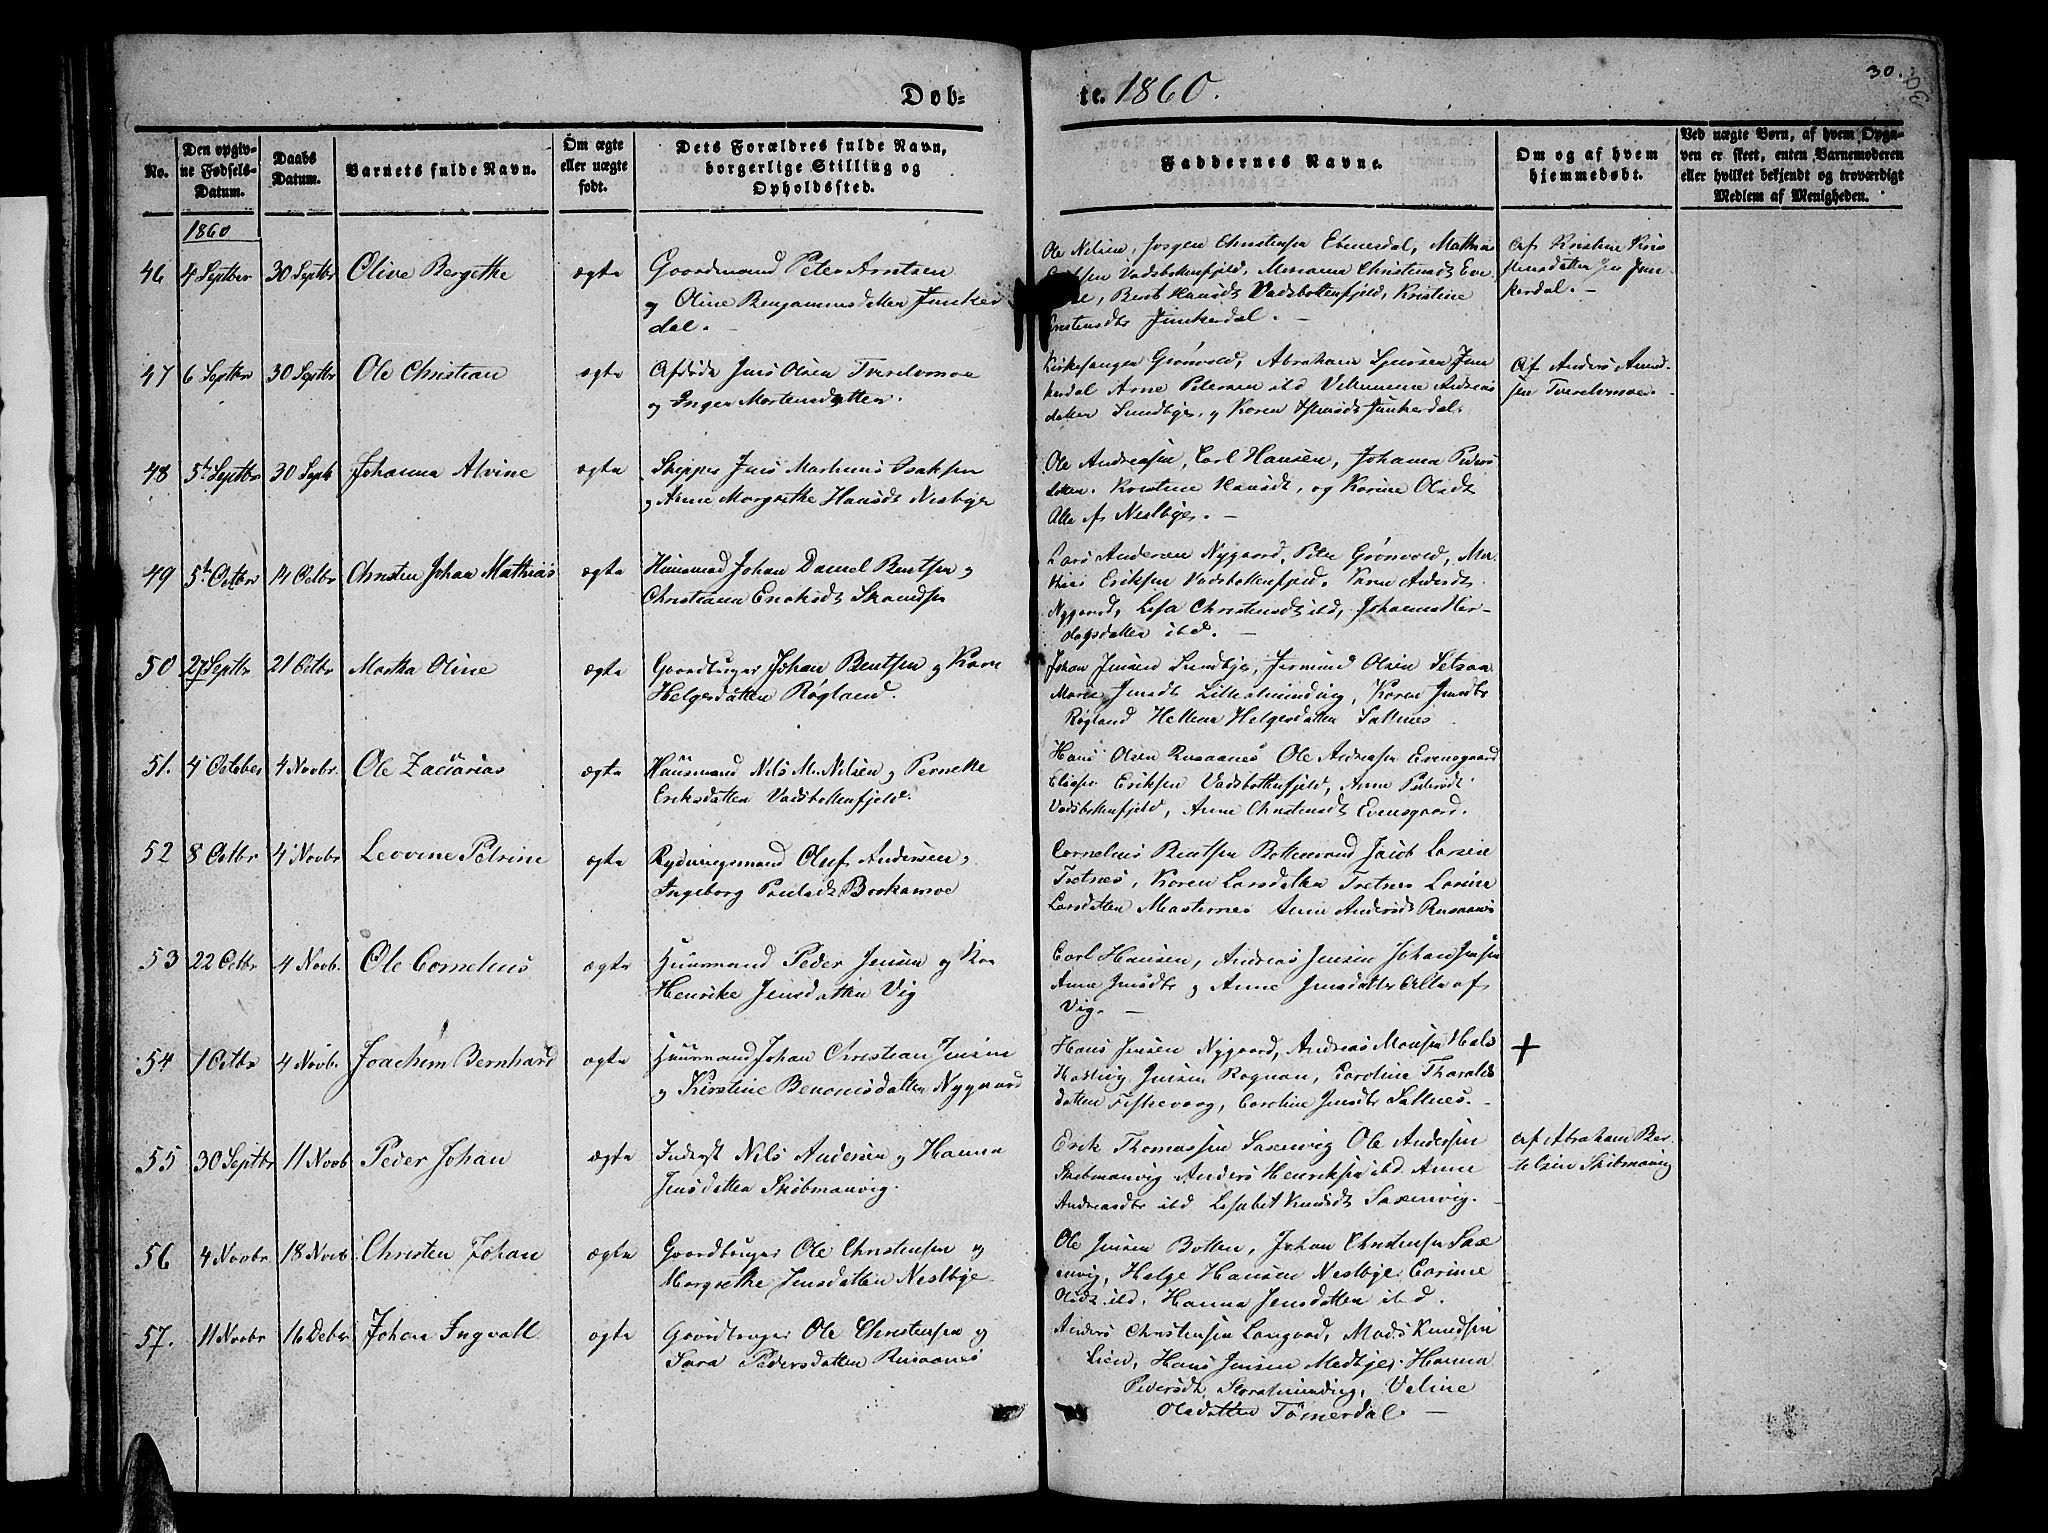 Døb=
te. 1860.
30.
No.
Den opgiv-
ne Fødsels-
Datum.
Daabs
Datum.
Barnets fulde Navn.
Om ægte
eller uægte
født.
Dets Forældres fulde Navn,
borgerlige Stilling og
Opholdssted.
Faddernes Navne.
Om og af hvem
hjemmedøbt.
Ved uægte Børn, af hvem Opga-
ven er skeet, enten Barnemoderen
eller hvilket bekjendt og troværdigt
Medlem af Menigheden.
1860
46 4 Septber 30 Septbr Olive Bergithe ægte
Gaardmand Peter Arntsen
og Oline Benjaminsdatter Junker
dal. -
Ole Nilsen, Jørgen Christensen Evenesdal, Mathias
Eriksen Vadsbottenfjeld, Mariana Christensdt Eve
Berit Hansdt Vadsbottenfjeld, Kristine
Junkerdal. -
Af Kristine Kris
tensdatter Jun
kerdal. -
47 6 Septbr 30 Septbr Ole Christian ægte
Afdøde Jens Olsen Tverelvmoe
og Inger Mortensdatter.
Kirkesanger Grønvold, Abraham Sjursen Jun
kerdal Arne Petersen ibd Vilhelmine Andreas
datter Sundbye, og Karen Junkerdal.
Af Anders Amund-
sen Tverelvmoe. -
48 5te Septbr 30 Septb Johanna Alvine ægte
Skipper Jens Martinus Isaksen
og Anne Margrethe Hansdt Nestbye
Ole Andreasen, Carl Hansen, Johanna Peders
datter. Kristine Hansdt, og Karine Olsdt
Alle af Nestbye. -
49 5te Octbr 14 Octbr Christen Johan Mathias ægte
Huusmand Johan Daniel Bentsen og
Christiana Enoksdt
Lars Andersen Nygaard, Peter Grønvold, Ma-
thias Eriksen Vadsbottenfjeld. Karen Andersdt
Nygaard, Lisa Christensdt ibd, Johanna Her-
dagsdatter ibd. -
50 27 Septbr 21 Octbr Martha Oline ægte
Gaardbruger Johan Bentsen og Karen
Helgesdatter Røgland.
Johan Jensen Sundbye, Jermund Olsen Setsaa
Maria Jensdt Karen Jensdtr
Røgland Hellena Helgesdatter Saltnes
51. 4 October 4 Novbr. Ole Zacarias ægte
Huusmand Nils M. Nilsen og Pernele
Eriksdatter Vadsbottenfjeld.
Hans Olsen Rusaanes Ole Andreasen Evensgaard
Elias Eriksen Vadsbottenfjeld, Anne Pedersdt
Vadsbottenfjeld, Anne Christensdt Evensgaard.
52 8 Octbr 4 Novbr Leovine Petrine ægte
Rydningsmand Oluf Andersen,
Ingeborg Paulsdt Borkamoe
Cornelius Bentsen Bottenvand Jacob Larsen
Tretnes, Karen Larsdatter Tretnes Larine
Larsdatter Anne Andersdt Rusaanes
53 22 Octbr 4 Novb. Ole Cornelius ægte
Huusmand Peder Jensen og Ka
Henrike Jensdatter Vig
Carl Hansen, Andreas Jensen Johan Jensen
Anne Jensdtr og Anne Jensdatter Alle af
Vig. -
54 1 Octbr 4 Novb. Joachim Bernhard ægte
Huusmand Johan Christian Jensen
og Kirstine Benonisdatter Nygaard
Hans Jensen Nygaard, Andreas Monsen Hals
Hartvig Jensen Rognan, Caroline Tharalds
datter Fiskevaag, Caroline Jensdtr Saltnes. -
+
55 30 Septbr 11 Novb Peder Johan ægte
Inderst Nils Andersen og Hanna
Jensdatter Skibmanvig.
Erik Thomassen Saxenvig Ole Andersen
Skibmanvig Anders Henriksen ibd Anne
Andreasdtr ibd Lisabet Knudsdt Saxenvig.
Af Abraham Ber
telsen Skibmanvig
56 4 Novbr. 18 Novb Christen Johan ægte
Gaardbruger Ole Christensen og
Margrethe Jensdatter Nestbye
Ole Jensen Botten, Johan Christensen Sax
envig, Helge Hansen Nestbye, Carine
Olsdt ibd. Hanna Jensdatter ibd.
57. 11 Novbr 16 Debr. Johan Ingvall ægte
Gaardbruger Ole Christensen og
Sara Pedersdatter Rusaanes
Anders Christensen Langaad, Mads Knudsen
Lien, Hans Jensen Medbye, Hanna
Pedersdt Valine
Olsdatter Tømerdal -